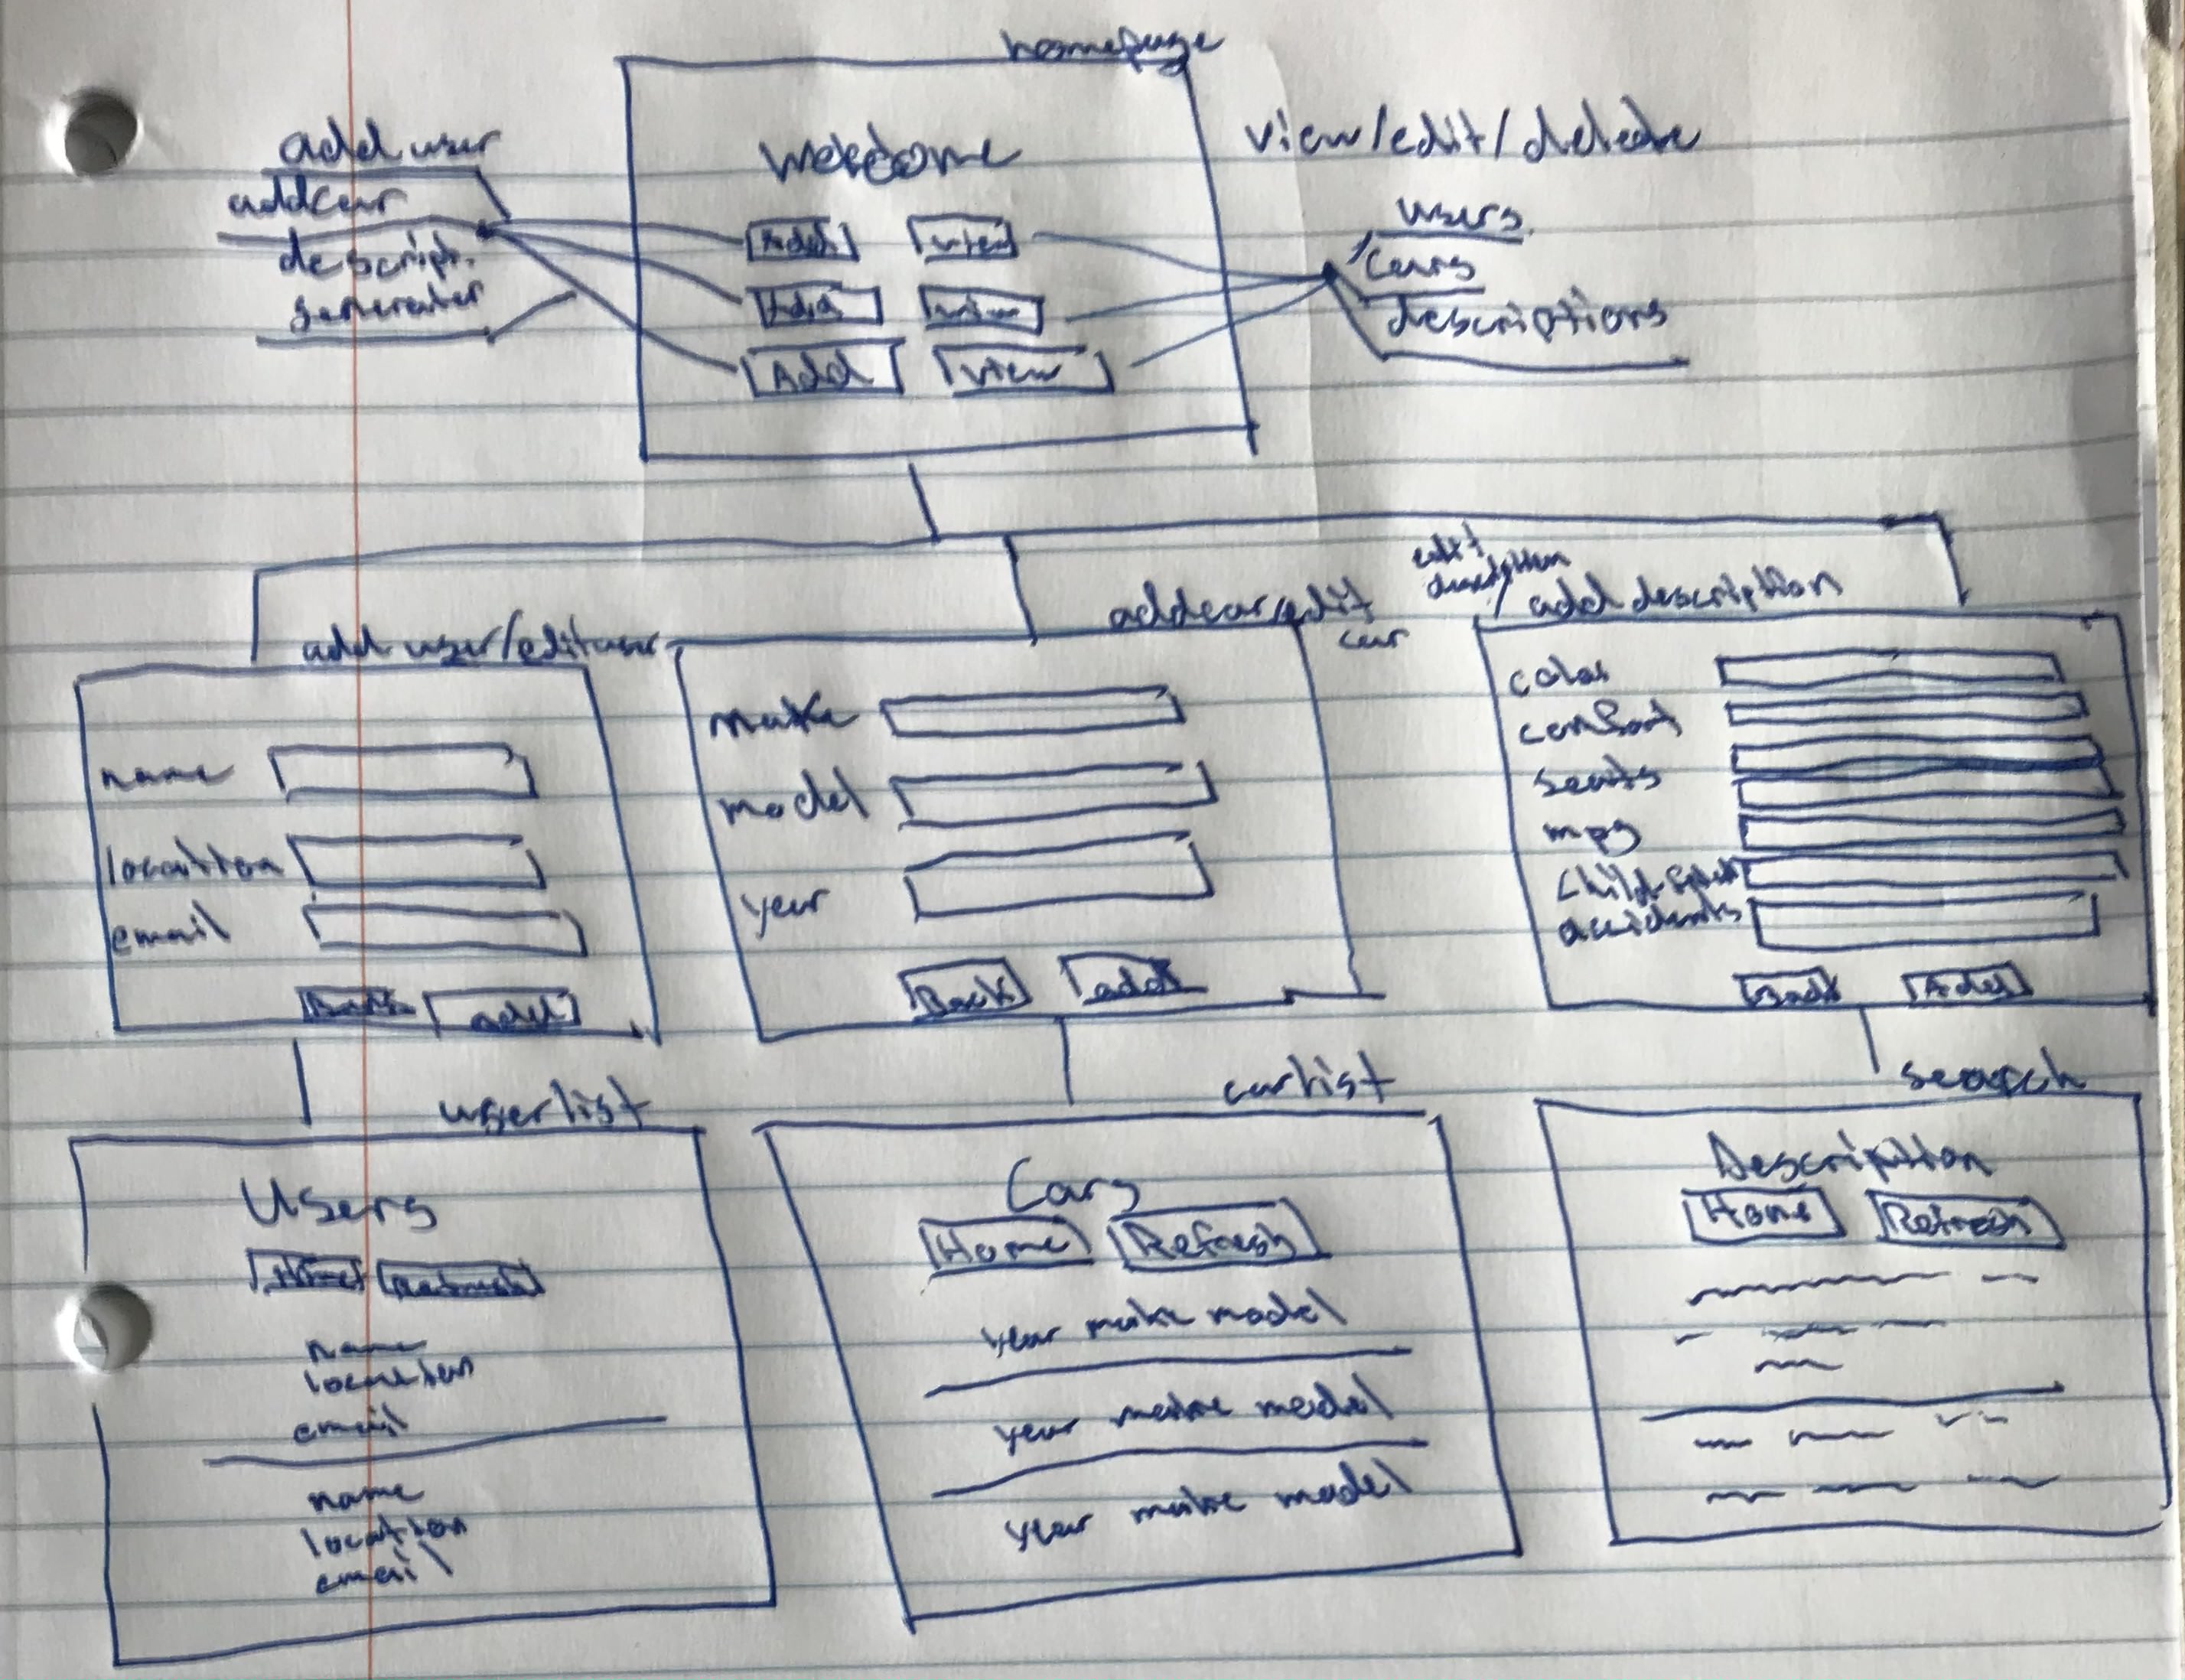 homepage
add user
add car
descript.
generator
Welcome
Add View
Add View
Add View
view/edit/delete
users
cars
descriptions
add user/edit user
name
location
email
Back add
add car/edit
car
make
model
year
Back add
edit
description
/ add description
color
comfort
seats
mpg
child-
accidents
Back Add
userlist
Users
Home Refresh
name
location
email
name
location
email
carlist
Cars
Home Refresh
year make model
year make model
year make model
search
Description
Home Refresh